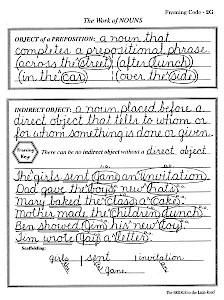 Framing Code - 2G
The Work of NOUNS
OBJECT of a PREPOSITION: a noun that
completes a prepositional phrase.
(across the street) (after lunch)
(in the car) (over the side)
INDIRECT OBJECT: a noun placed before a
direct object that tells to whom or
for whom something is done or given.
Framing Keys
There can be no indirect object without a direct object.
The girls sent Jane an invitation.
Dad gave the boys new hats.
Mary baked the class a cake.
Mother made the children lunch.
Ben showed Jim his new toy.
Jim wrote a letter.
Scaffolding:
girls sent invitation
Jane